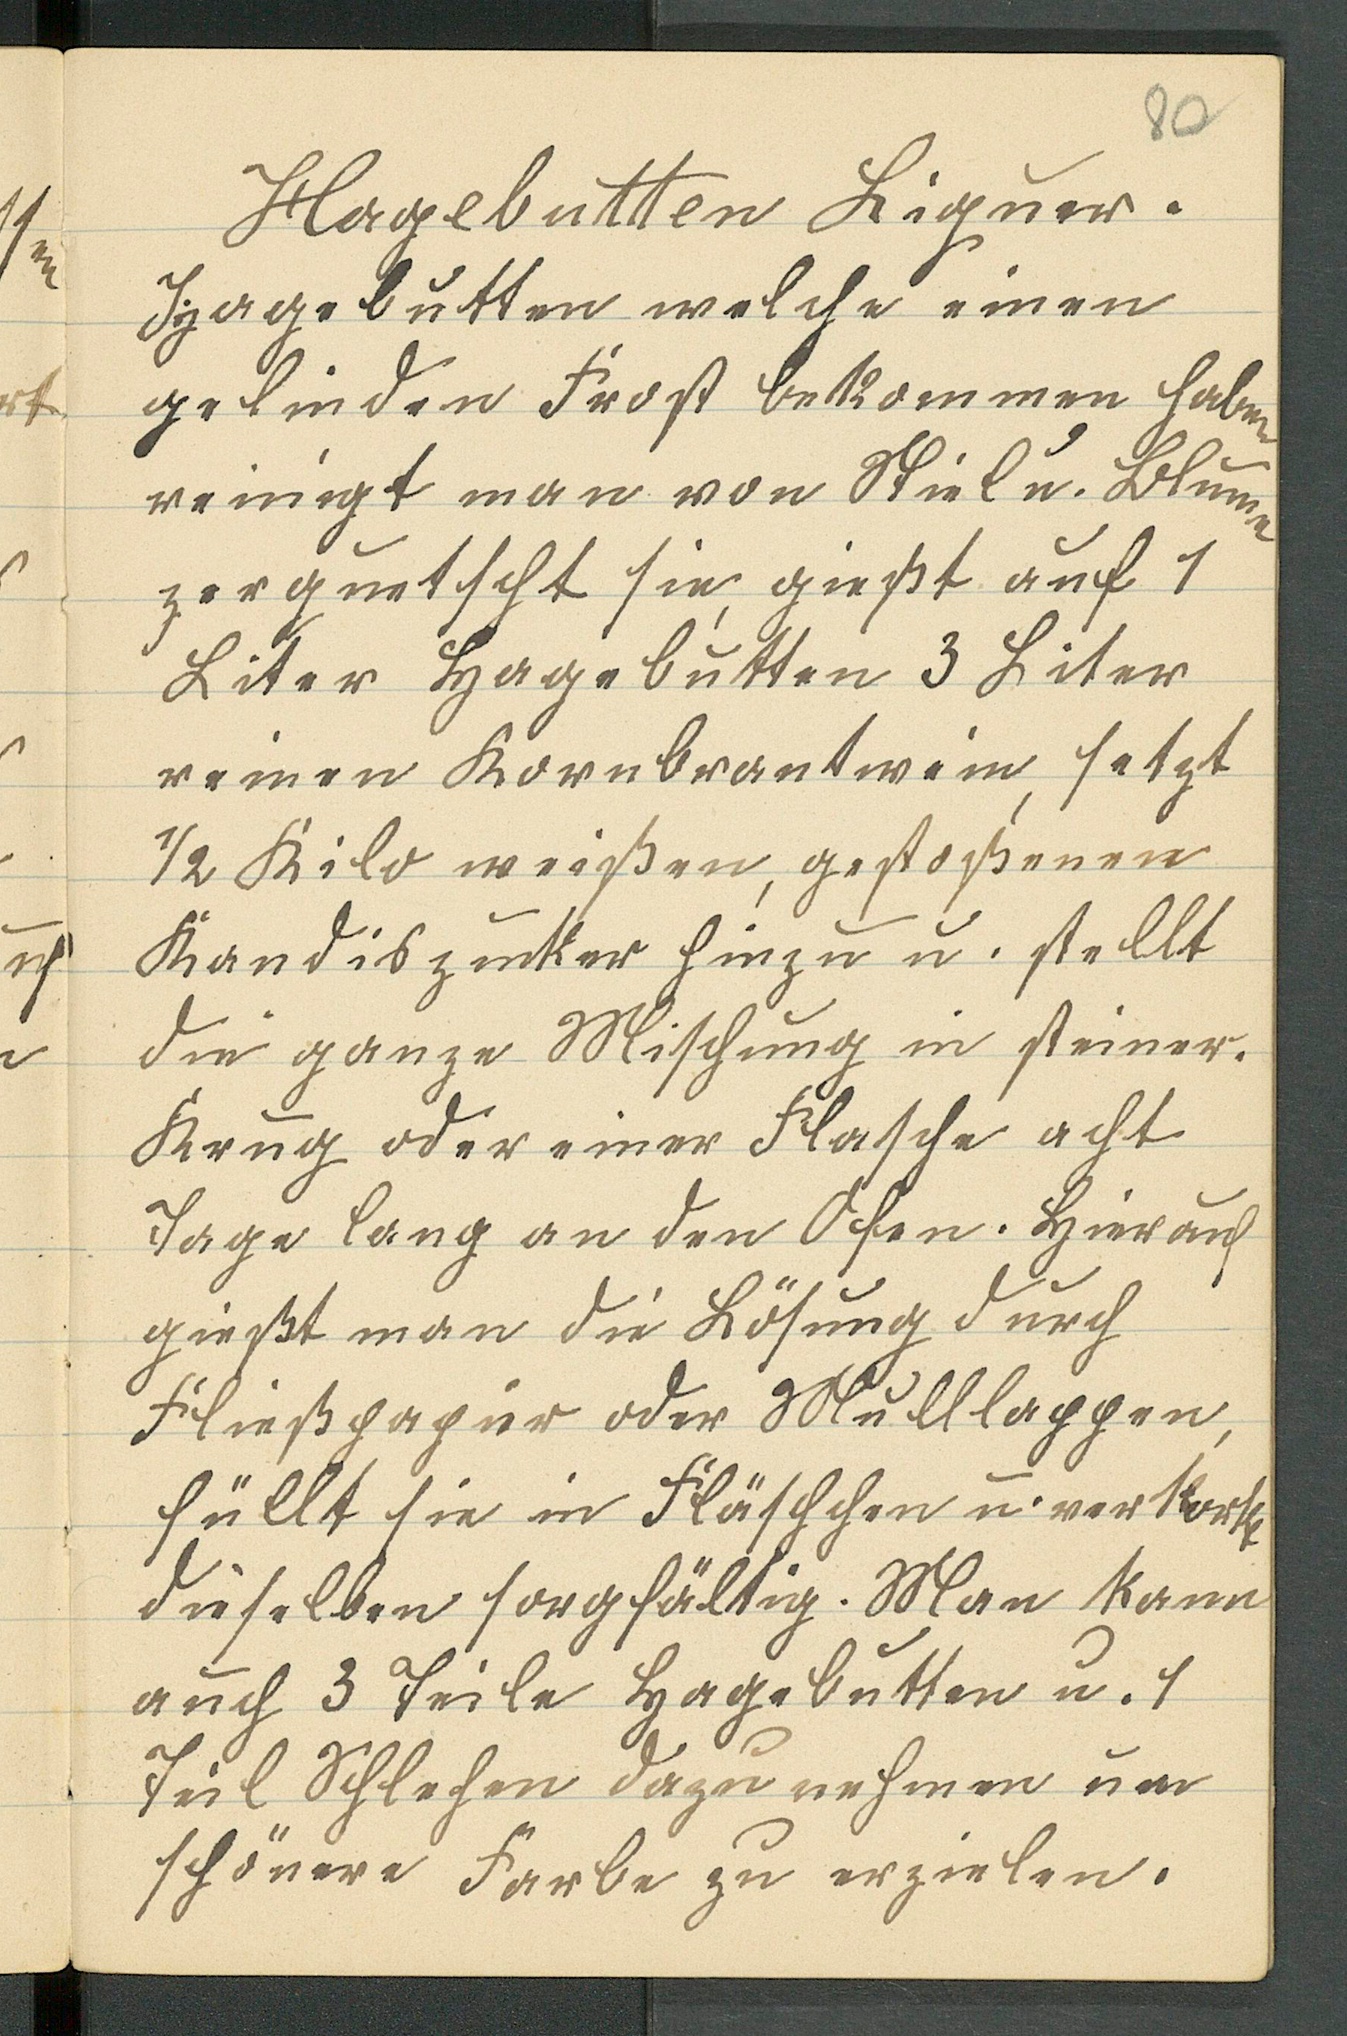 80
Hagebutten Liquer.
Hagebutten welche einen
gelinden Frost bekommen haben
reinigt man von Stiel u. Blume
zerquetscht sie, gießt auf 1
Liter Hagebutten 3 Liter
reinen Kornbrantwein, setzt
1/2 Kilo weißen, gestoßenen
Kandiszucker hinzu u. stellt
die ganze Mischung in steiner.
Krug oder einer Flasche acht
Tage lang an den Ofen. Hierauf
gießt man die Lösung durch
Fließpapier oder Mulllappen,
füllt sie in Fläschchen u. verkorkt
dieselben sorgfältig. Man kann
auch 3 Teile Hagebutten u. 1
Teil Schlehen dazu nehmen um
schönere Farbe zu erzielen.